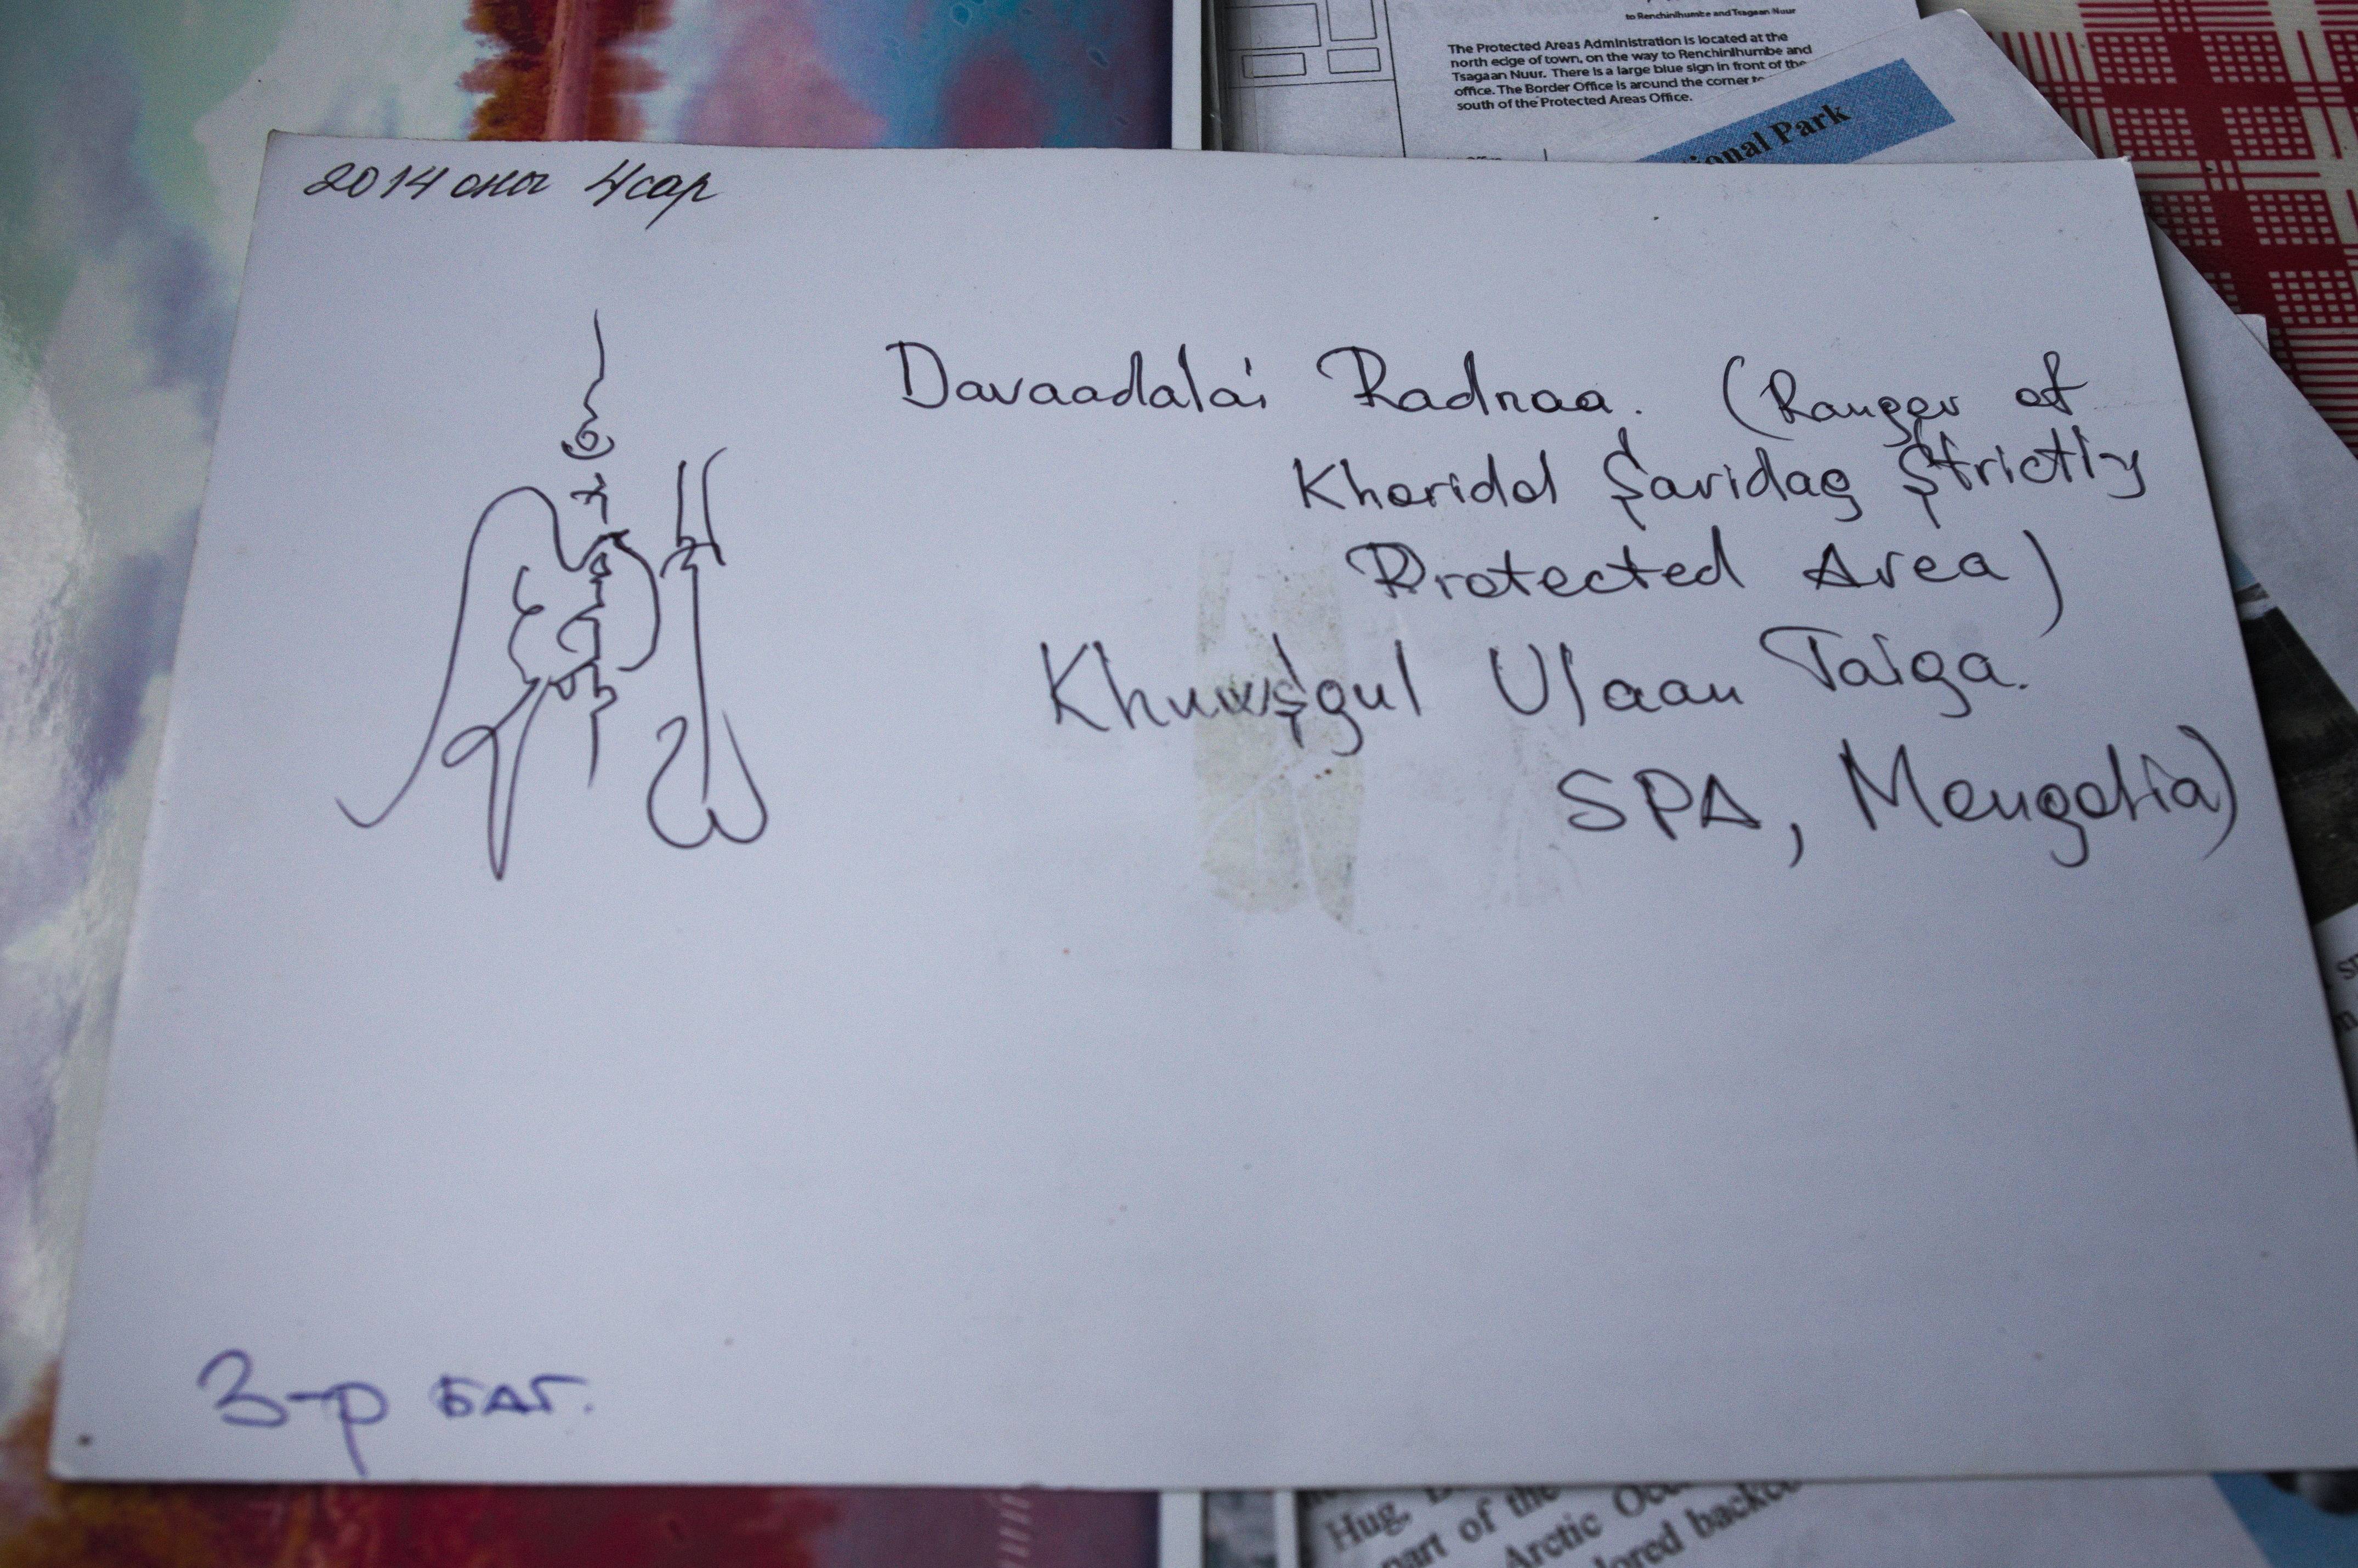 to Renchinlhumbe and Tsagaan Nuur
The Protected Areas Administration is located at the
north edge of town, on the way to Renchinlhumbe and
Tsagaan Nuur. There is a large blue sign in front of the
office. The Border Office is around the corner to
south of the Protected Areas Office.
ional Park
2014 оны 4 сар
Davaadalai Radnaa. (Ranger of
Khoridol Saridag Strictly
Protected Area)
Khuwsgul Ulaan Taiga.
SPA, Mongolia)
3-р баг.
Hug,
part of the
Arctic
lored